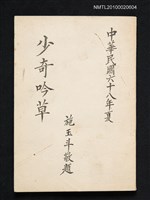 NMTL20100020604
中華民國六十八年夏
少奇吟草
施玉斗敬題